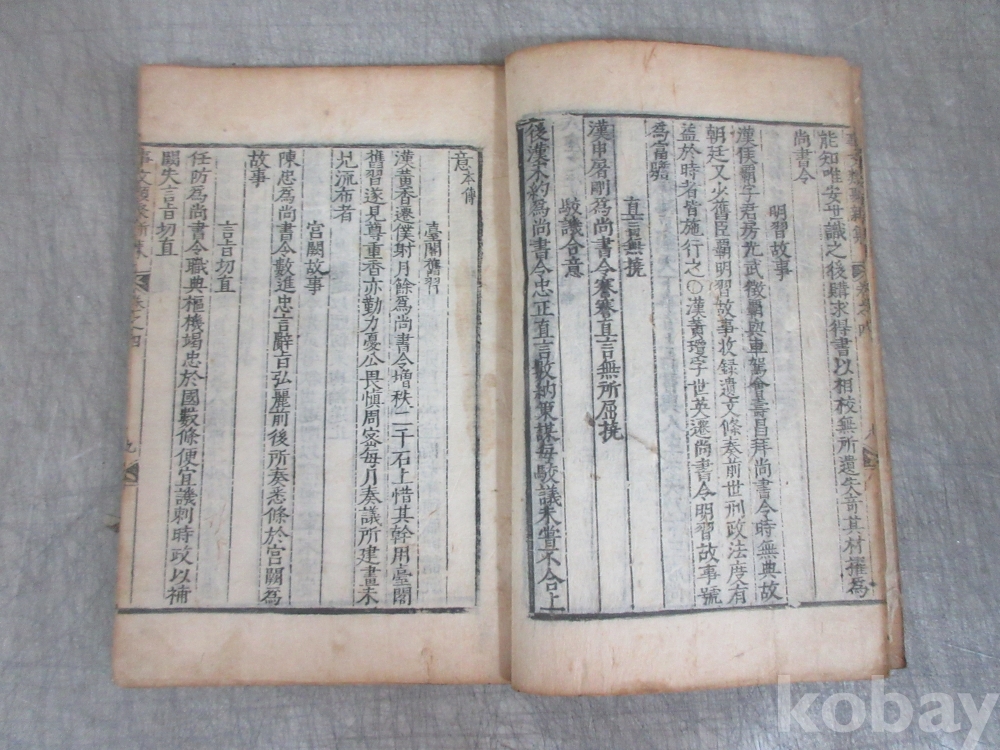 能知唯安世識之後購求得書以相校無所遺失奇其材擢為
尚書令
明習故事
漢侯霸字君房光武徵霸與車駕會壽昌拜尚書令時無典故
朝廷又少舊臣霸明習故事收録遺文條奏前世刑政法度有
益於時者皆施行之○漢黃瓊字世英遷尚書令明習故事號
為富贍
直言無撓
漢申屠剛為尚書令謇謇直言無所屈撓
駮議合意
後漢 為尚書令忠正直言數納策謀每駮議未嘗不合上
意本傳
臺閣舊習
漢黃香遷僕射月餘為尚書令增秩二千石上惜其幹用臺閣
舊習遂見尊重香亦勤力憂公畏慎周密每月奏議所建畫未
見流布者
宮闕故事
陳忠為尚書令數進忠言辭旨弘麗前後所奏悉條於宮闕為
故事
言旨切直
任防為尚書令職典樞機竭忠於國數條便宜議刺時政以補
闕失言旨切直
kobay